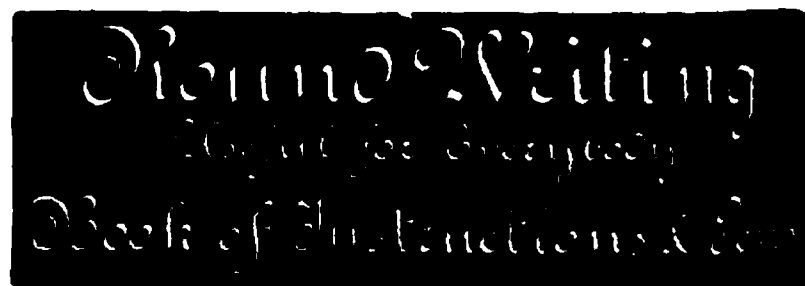 Round Writing
Useful for Everybody
Book of Instructions &